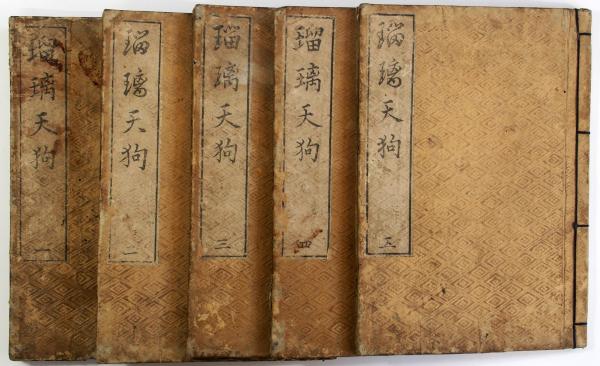 瑠璃天狗 一
瑠璃天狗 二
瑠璃天狗 三
瑠璃天狗 四
瑠璃天狗 五